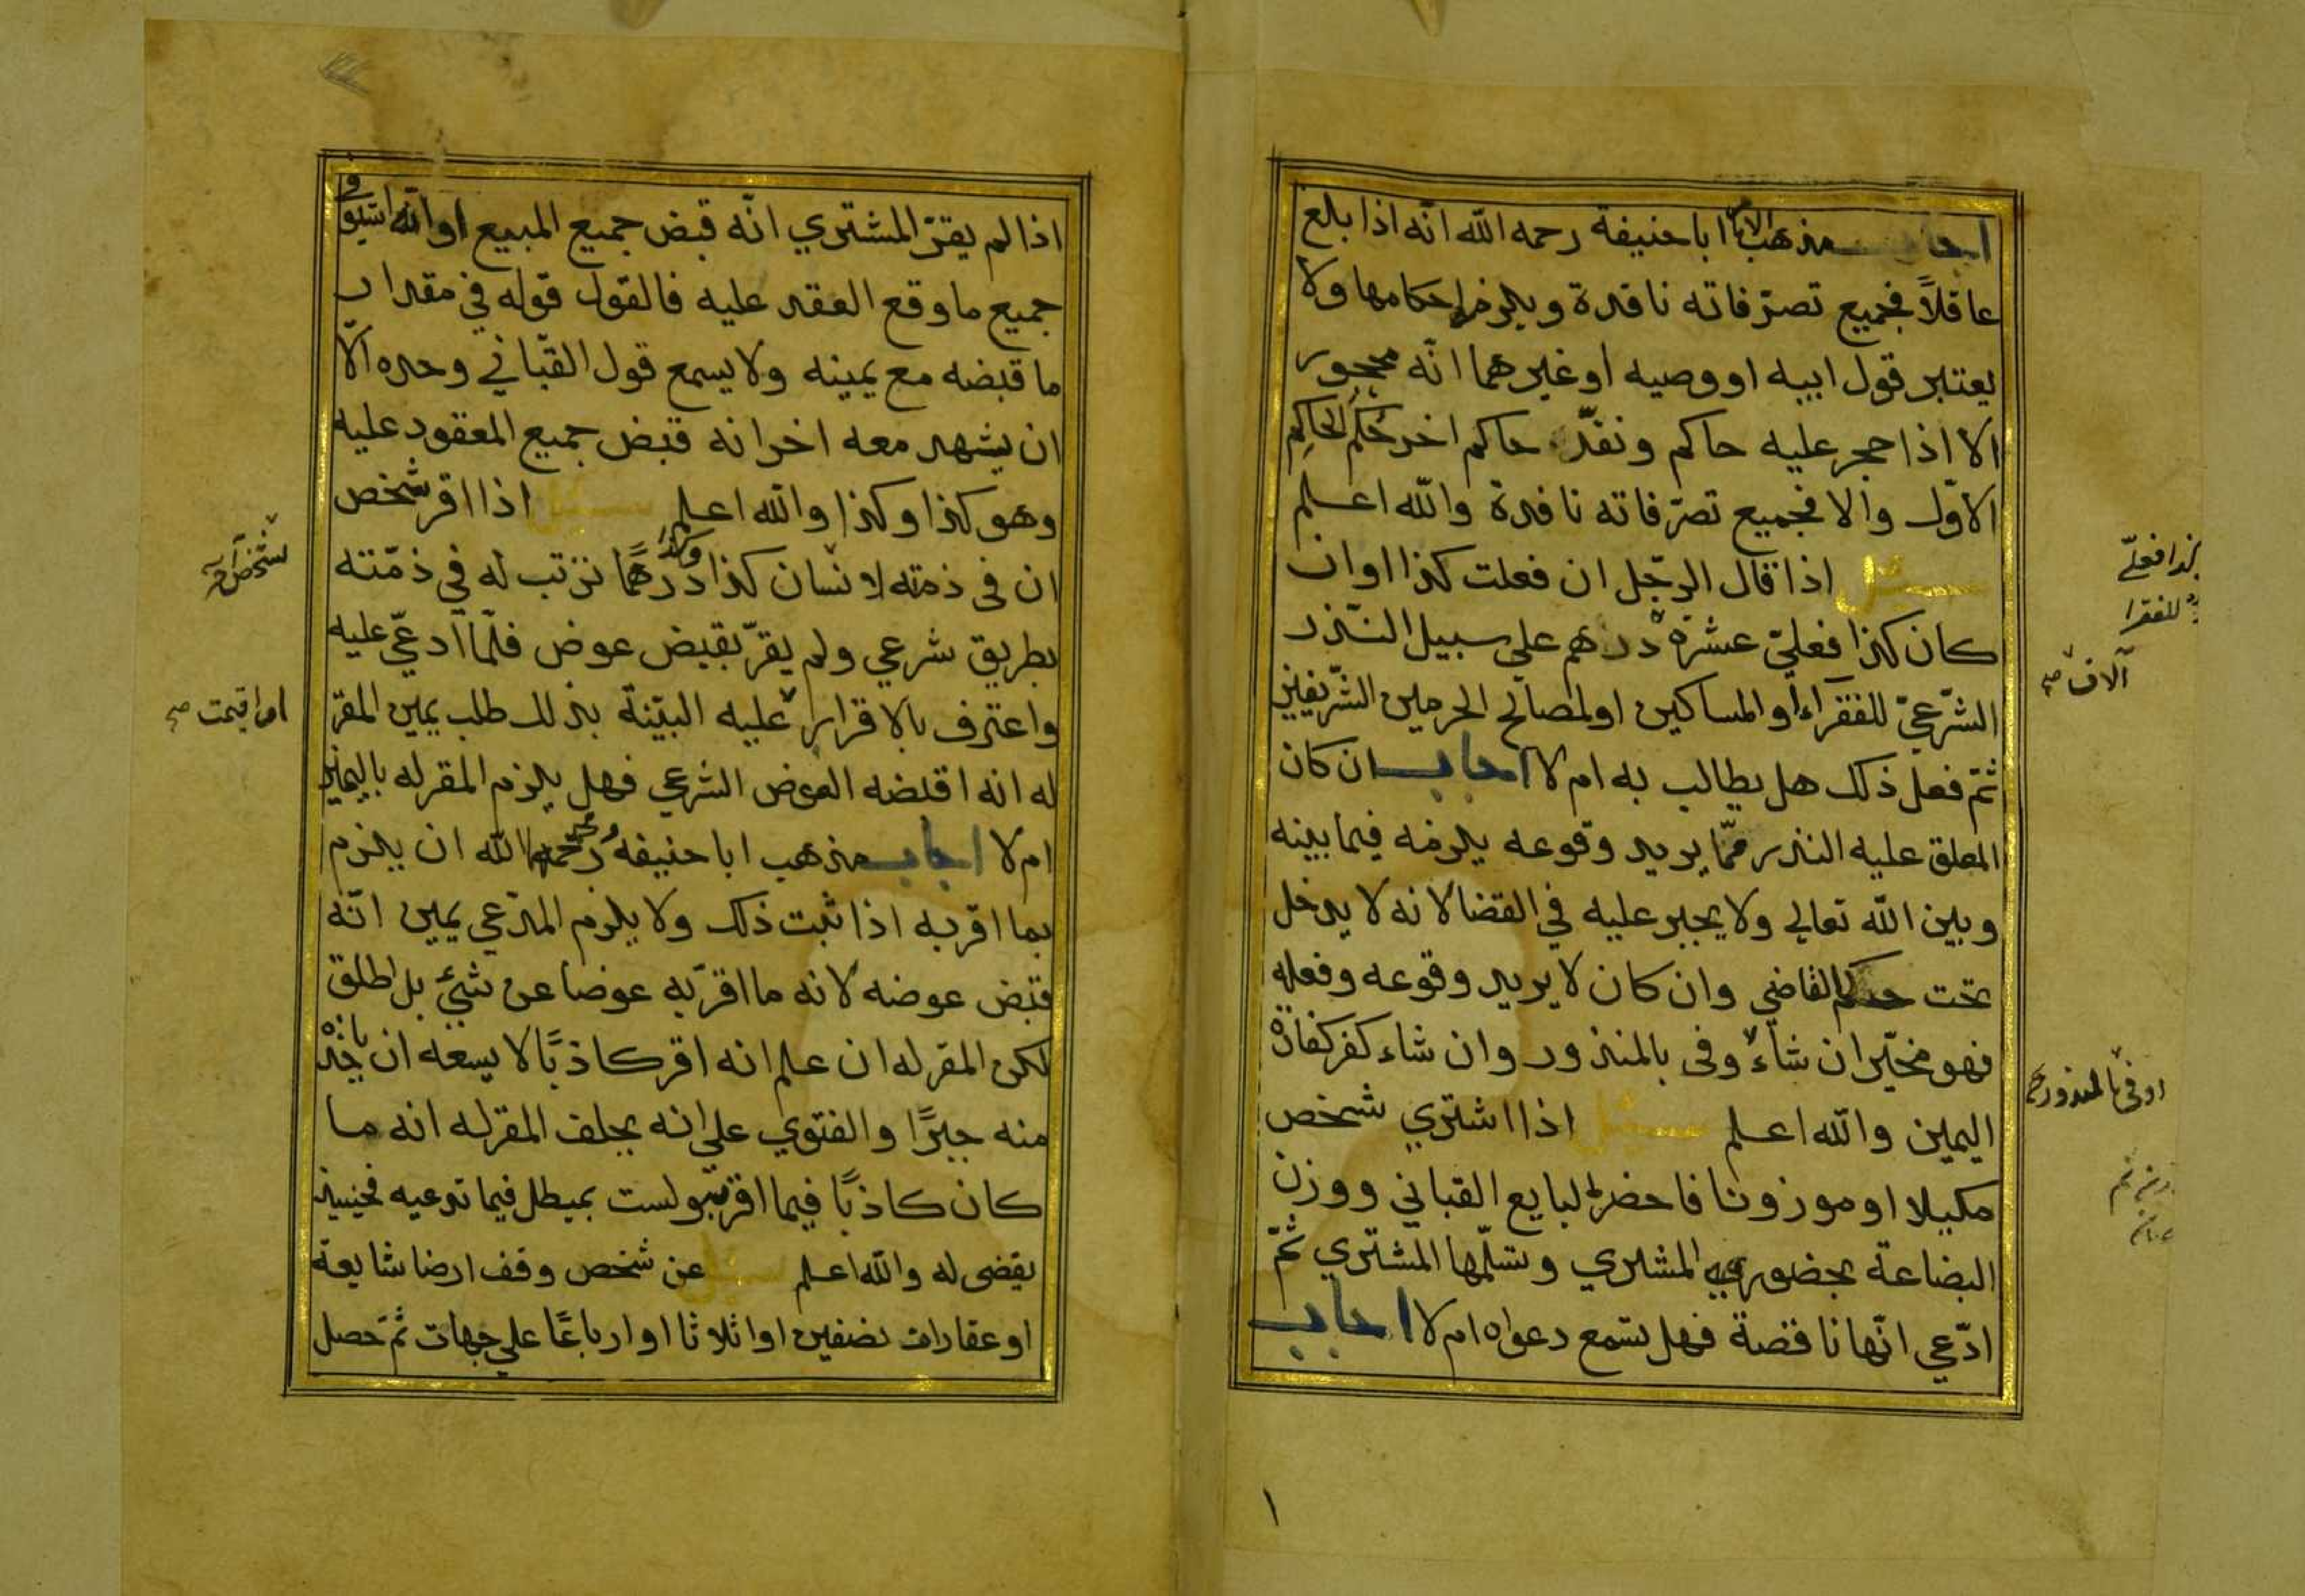 اجاب مذهب الامام ابا حنيفة رحمه الله انه اذا بلغ
عاقلاً فجميع تصرّفاته نافذة ويلزم احكامها ولا
يعتبر قول ابيه او وصيه او غيرهما انّه محجور
الا اذا حجر عليه حاكم ونفذّ حاكم اخر حُكم الحاكم
الاوّل والا فجميع تصرّفاته نافذة والله اعلم
سئل اذا قال الرجّل ان فعلت كذا او ان
كان كذا فعليّ عشرة درهم على سبيل النّذر
الشّرعيّ للفقراء او المساكين او لمصالح الحرمين الشّريفين
ثمّ فعل ذلك هل يطالب به ام لا اجاب ان كان
المعلق عليه النذر ممّا يريد وقوعه يلزمه فيما بينه
وبين الله تعالى ولا يجبر عليه في القضا لانه لا يدخل
تحت حكم القاضي وان كان لا يريد وقوعه وفعله
فهو مخيّر ان شاء وفى بالمنذور وان شاء كفر كفارة
اليمين والله اعلم سئل اذا اشتري شخص
مكيلا او موزونا فاحضر البايع القباني ووزن
البضاعة بحضوره المشتري وتسلّمها المشتري ثمّ
ادّعي انّها ناقصة فهل تسمع دعواه ام لا اجاب
للفقرا
آلاف صح
او فى بالمنذور صح
١
اذا لم يقرّ المشتري انّه قبض جميع المبيع او انّه استوفى
جميع ما وقع العقد عليه فالقول قوله في مقدار
ما قبضه مع يمينه ولا يسمع قول القبّاني وحده الّا
ان يشهد معه اخر انه قبض جميع المعقود عليه
وهو كذا وكذا والله اعلم سئل اذا اقر شخص
ان في ذمته لانسان كذا وكذا درهمًا ترتب له في ذمّته
بطريق شرعي ولم يقرّ بقبض عوض فلمّا ادعّي عليه
واعترف بالاقرار عليه البيّنة بذلك طلب يمين المقرّ
له انه اقبضه العوض الشرعي فهل يلزم المقر له باليمين
ام لا اجاب مذهب ابا حنيفة رحمه الله ان يلزم
بما اقر به اذا ثبت ذلك ولا يلزم المدّعي يمين انّه
قبض عوضه لانه ما اقرّ به عوضا عن شيئ بل اطلق
لكن المقر له ان علم انه اقر كاذبًا لا يسعه ان ياخذه
منه جبرًا والفتوي على انه يحلف المقر له انه ما
كان كاذبًا فيما اقر به ولست بمبطل فيما تدعيه فحينيذ
يقضى له والله اعلم سئل عن شخص وقف ارضا شايعة
او عقارات نصفين او اثلاثا او ارباعًا على جهات ثمّ حصل
او اقيمت صح